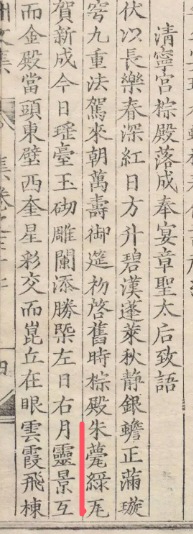 清寧宮椶殿落成奉宴章聖太后致語
伏以長樂春深紅日方升碧漢蓬萊秋靜銀蟾正滿璇
穹九重法駕來朝萬壽御筵初啓舊時椶殿朱甍綵瓦
賀新成今日瑤臺玉砌雕闌添勝槩左日右月靈景互
而金殿當頭東壁西奎星彩交而崑丘在眼雲霞飛棟